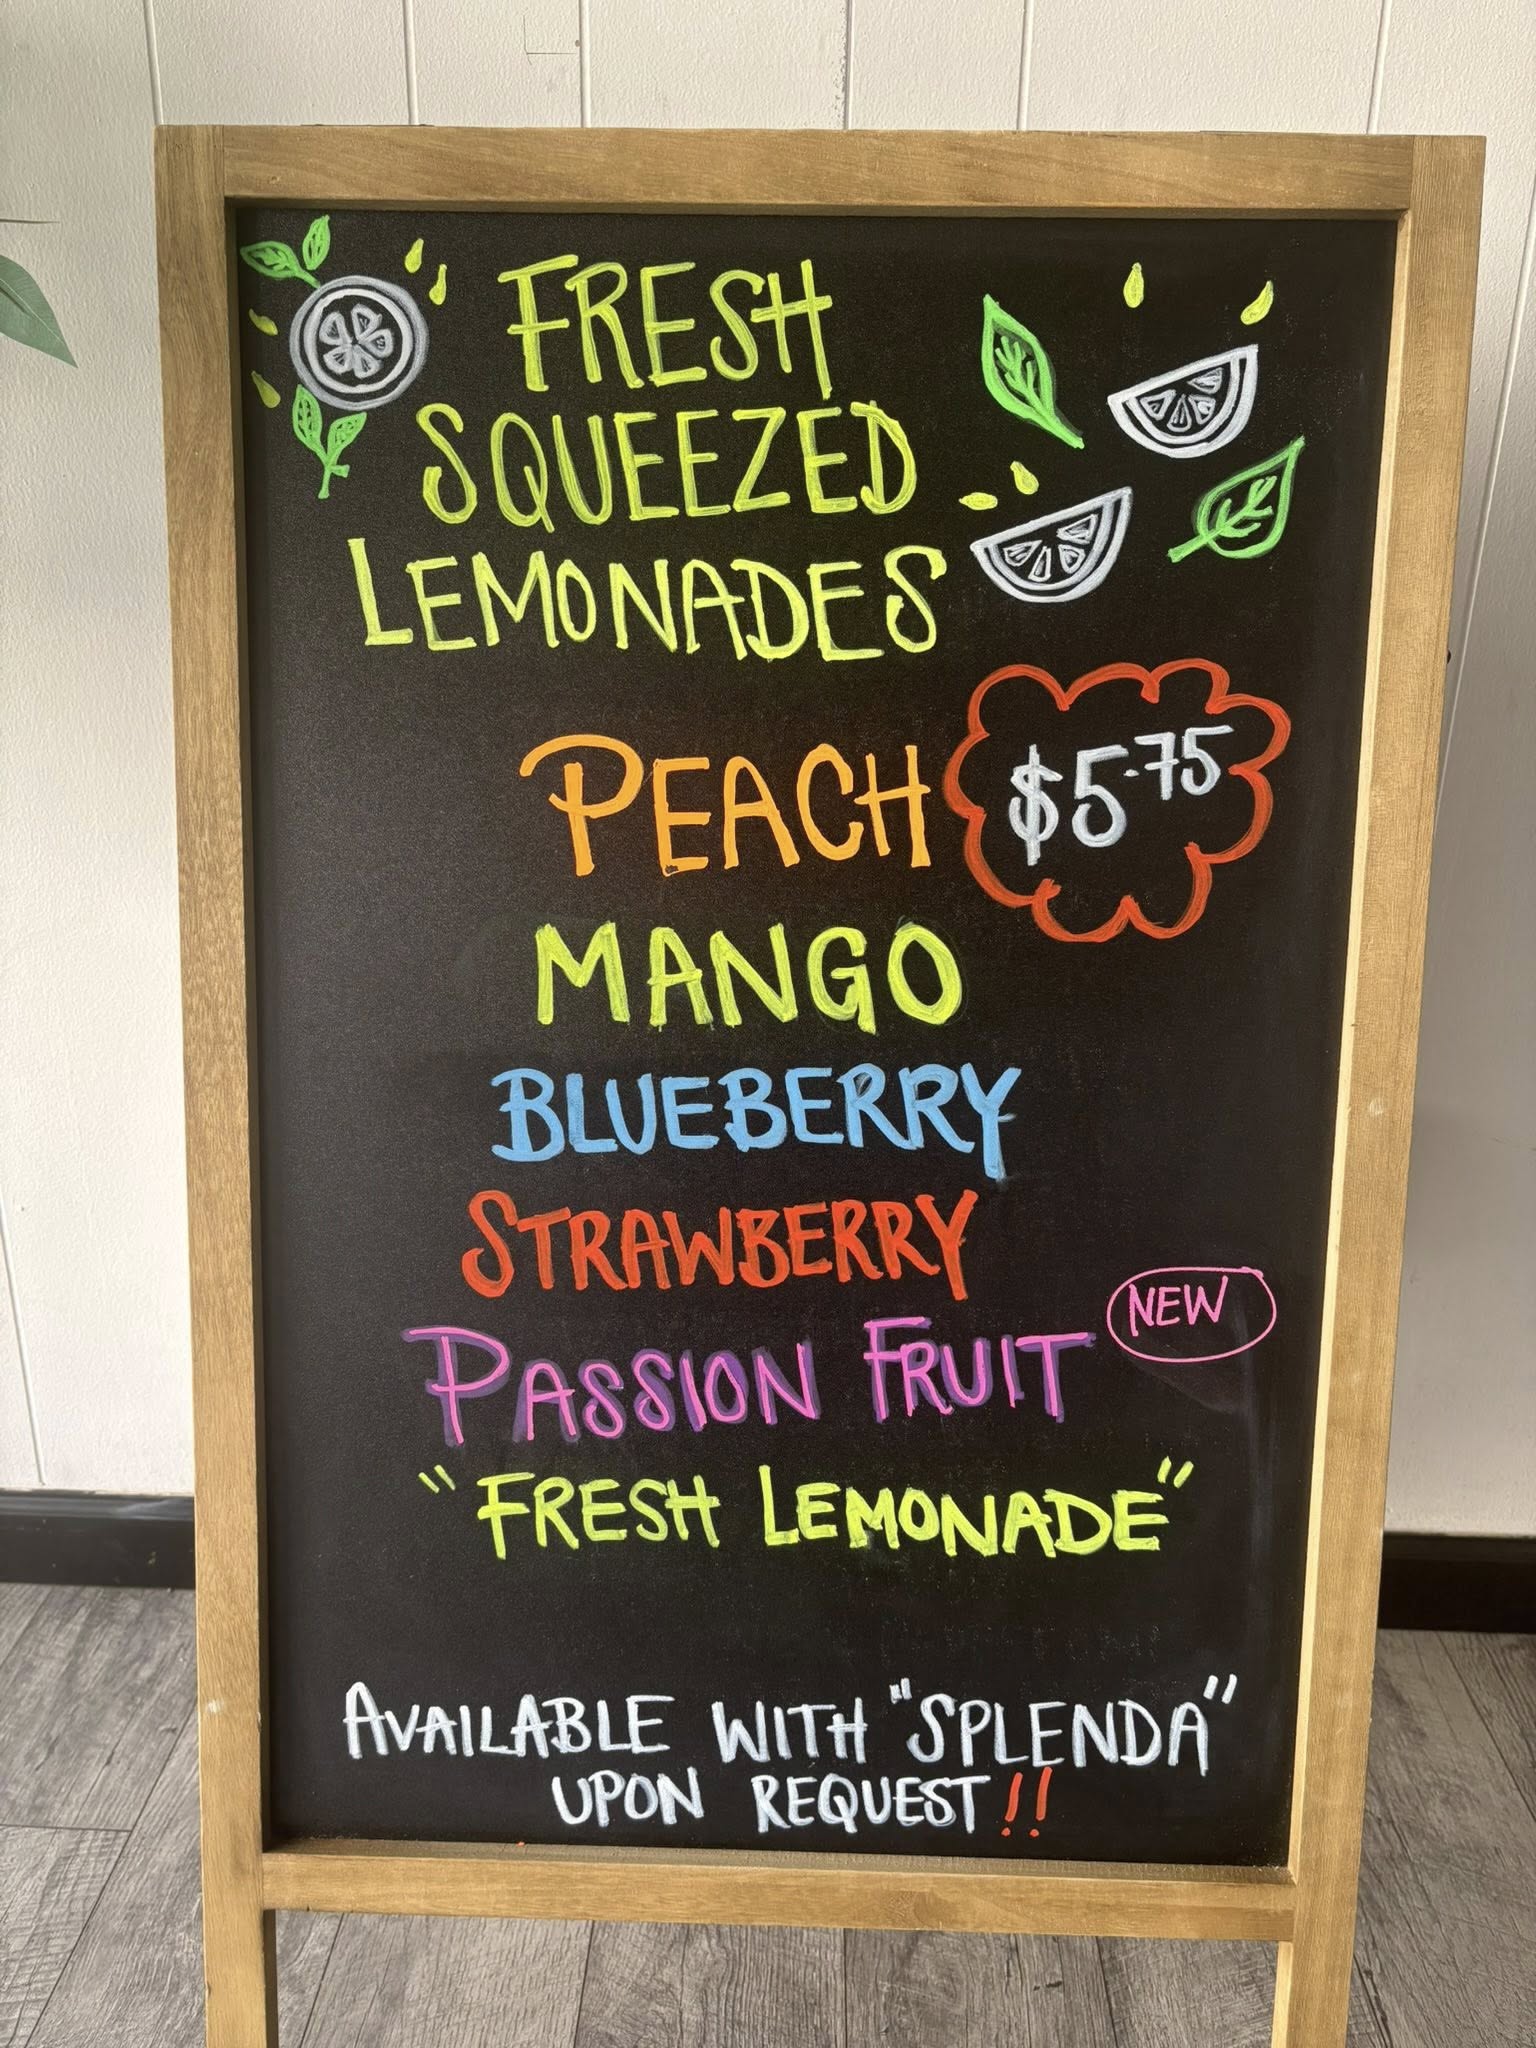 FRESH
SQUEEZED
LEMONADES
PEACH
$5.75
MANGO
BLUEBERRY
STRAWBERRY
PASSION FRUIT
NEW
"FRESH LEMONADE"
AVAILABLE WITH "SPLENDA"
UPON REQUEST!!